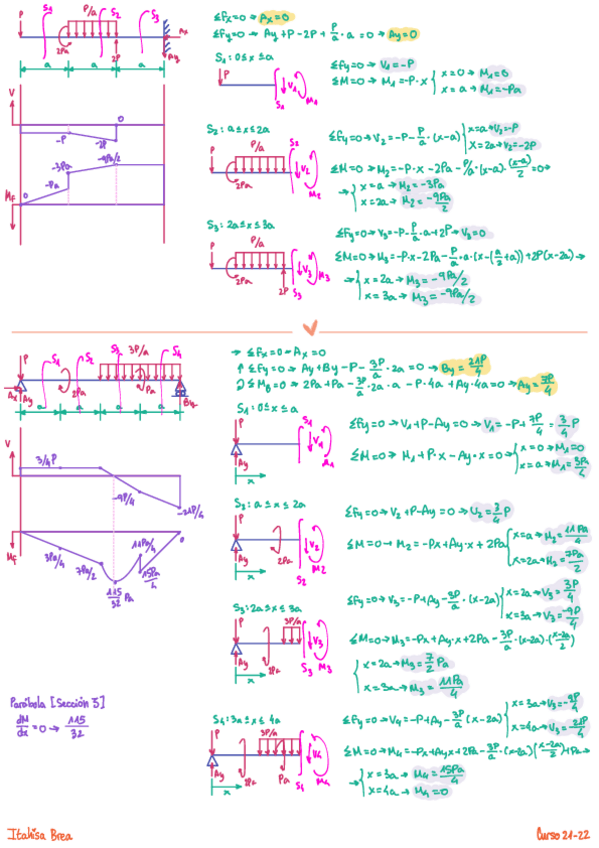 P S1 P/a S2 S3
2Pa 2P Ax
Ay
a a a
V
0
-P -2P
-3Pa -9Pa/2
-Pa
0
MF
ΣFx=0 → Ax=0
ΣFy=0 → Ay+P-2P+P/a·a=0 → Ay=0
S1: 0≤x≤a
P V1 S1 M1
ΣFy=0 → V1=-P
ΣM=0 → M1=-P·x { x=0 → M1=0
x=a → M1=-Pa
S2: a≤x≤2a
P P/a S2 V2 2Pa M2
ΣFy=0 → V2=-P-P/a·(x-a) { x=a → V2=-P
x=2a → V2=-2P
ΣM=0 → M2=-P·x-2Pa-P/a·(x-a)·(x-a)/2=0 →
→ { x=a → M2=-3Pa
x=2a → M2=-9Pa/2
S3: 2a≤x≤3a
P P/a V3 2Pa 2P S3 M3
ΣFy=0 → V3=-P-P/a·a+2P → V3=0
ΣM=0 → M3=-P·x-2Pa-P/a·a·(x-(a/2+a))+2P(x-2a) →
→ { x=2a → M3=-9Pa/2
x=3a → M3=-9Pa/2
P S1 S2 S3 3P/a S4
Ax Ay 2Pa Pa By
a a a a
V
3/4 P
-9P/4
-21P/4
MF
0
3Pa/4 7Pa/2 115/32 Pa 11Pa/4 15Pa/4
→ ΣFx=0 → Ax=0
↑ ΣFy=0 → Ay+By-P-3P/a·2a=0 → By=21P/4
ΣMB=0 → 2Pa+Pa-3P/a·2a·a-P·4a+Ay·4a=0 → Ay=7P/4
S1: 0≤x≤a
P S1 V1 M1 Ay x
ΣFy=0 → V1+P-Ay=0 → V1=-P+7P/4=3/4·P
ΣM=0 → M1+P·x-Ax·x=0 → { x=0 → M1=0
x=a → M1=3Pa/4
S2: a≤x≤2a
P V2 Ay 2Pa M2 S2 x
ΣFy=0 → V2+P-Ay=0 → V2=3/4 P
ΣM=0 → M2=-Px+Ay·x+2Pa { x=a → M2=11Pa/4
x=2a → M2=7Pa/2
S3: 2a≤x≤3a
P 3P/a V3 Ay 2Pa S3 M3 x
ΣFy=0 → V3=-P+Ay-3P/a·(x-2a) { x=2a → V3=3P/4
x=3a → V3=-9P/4
ΣM=0 → M3=-Px+Ay·x+2Pa-3P/a·(x-2a)·(x-2a/2)
{ x=2a → M3=7/2 Pa
x=3a → M3=11Pa/4
Parábola [Sección 3]
dM/dx=0 → 115/32
S4: 3a≤x≤4a
P 3P/a V4 Ay 2Pa Pa S4 M4 x
ΣFy=0 → V4=-P+Ay-3P/a(x-2a) { x=3a → V3=-9P/4
x=4a → V4=-21P/4
ΣM=0 → M4=-Px+Ay x+2Pa-3P/a·(x-2a)(x-2a/2)+Pa →
{ x=3a → M4=15Pa/4
x=4a → M4=0
Itahisa Brea
Curso 21-22